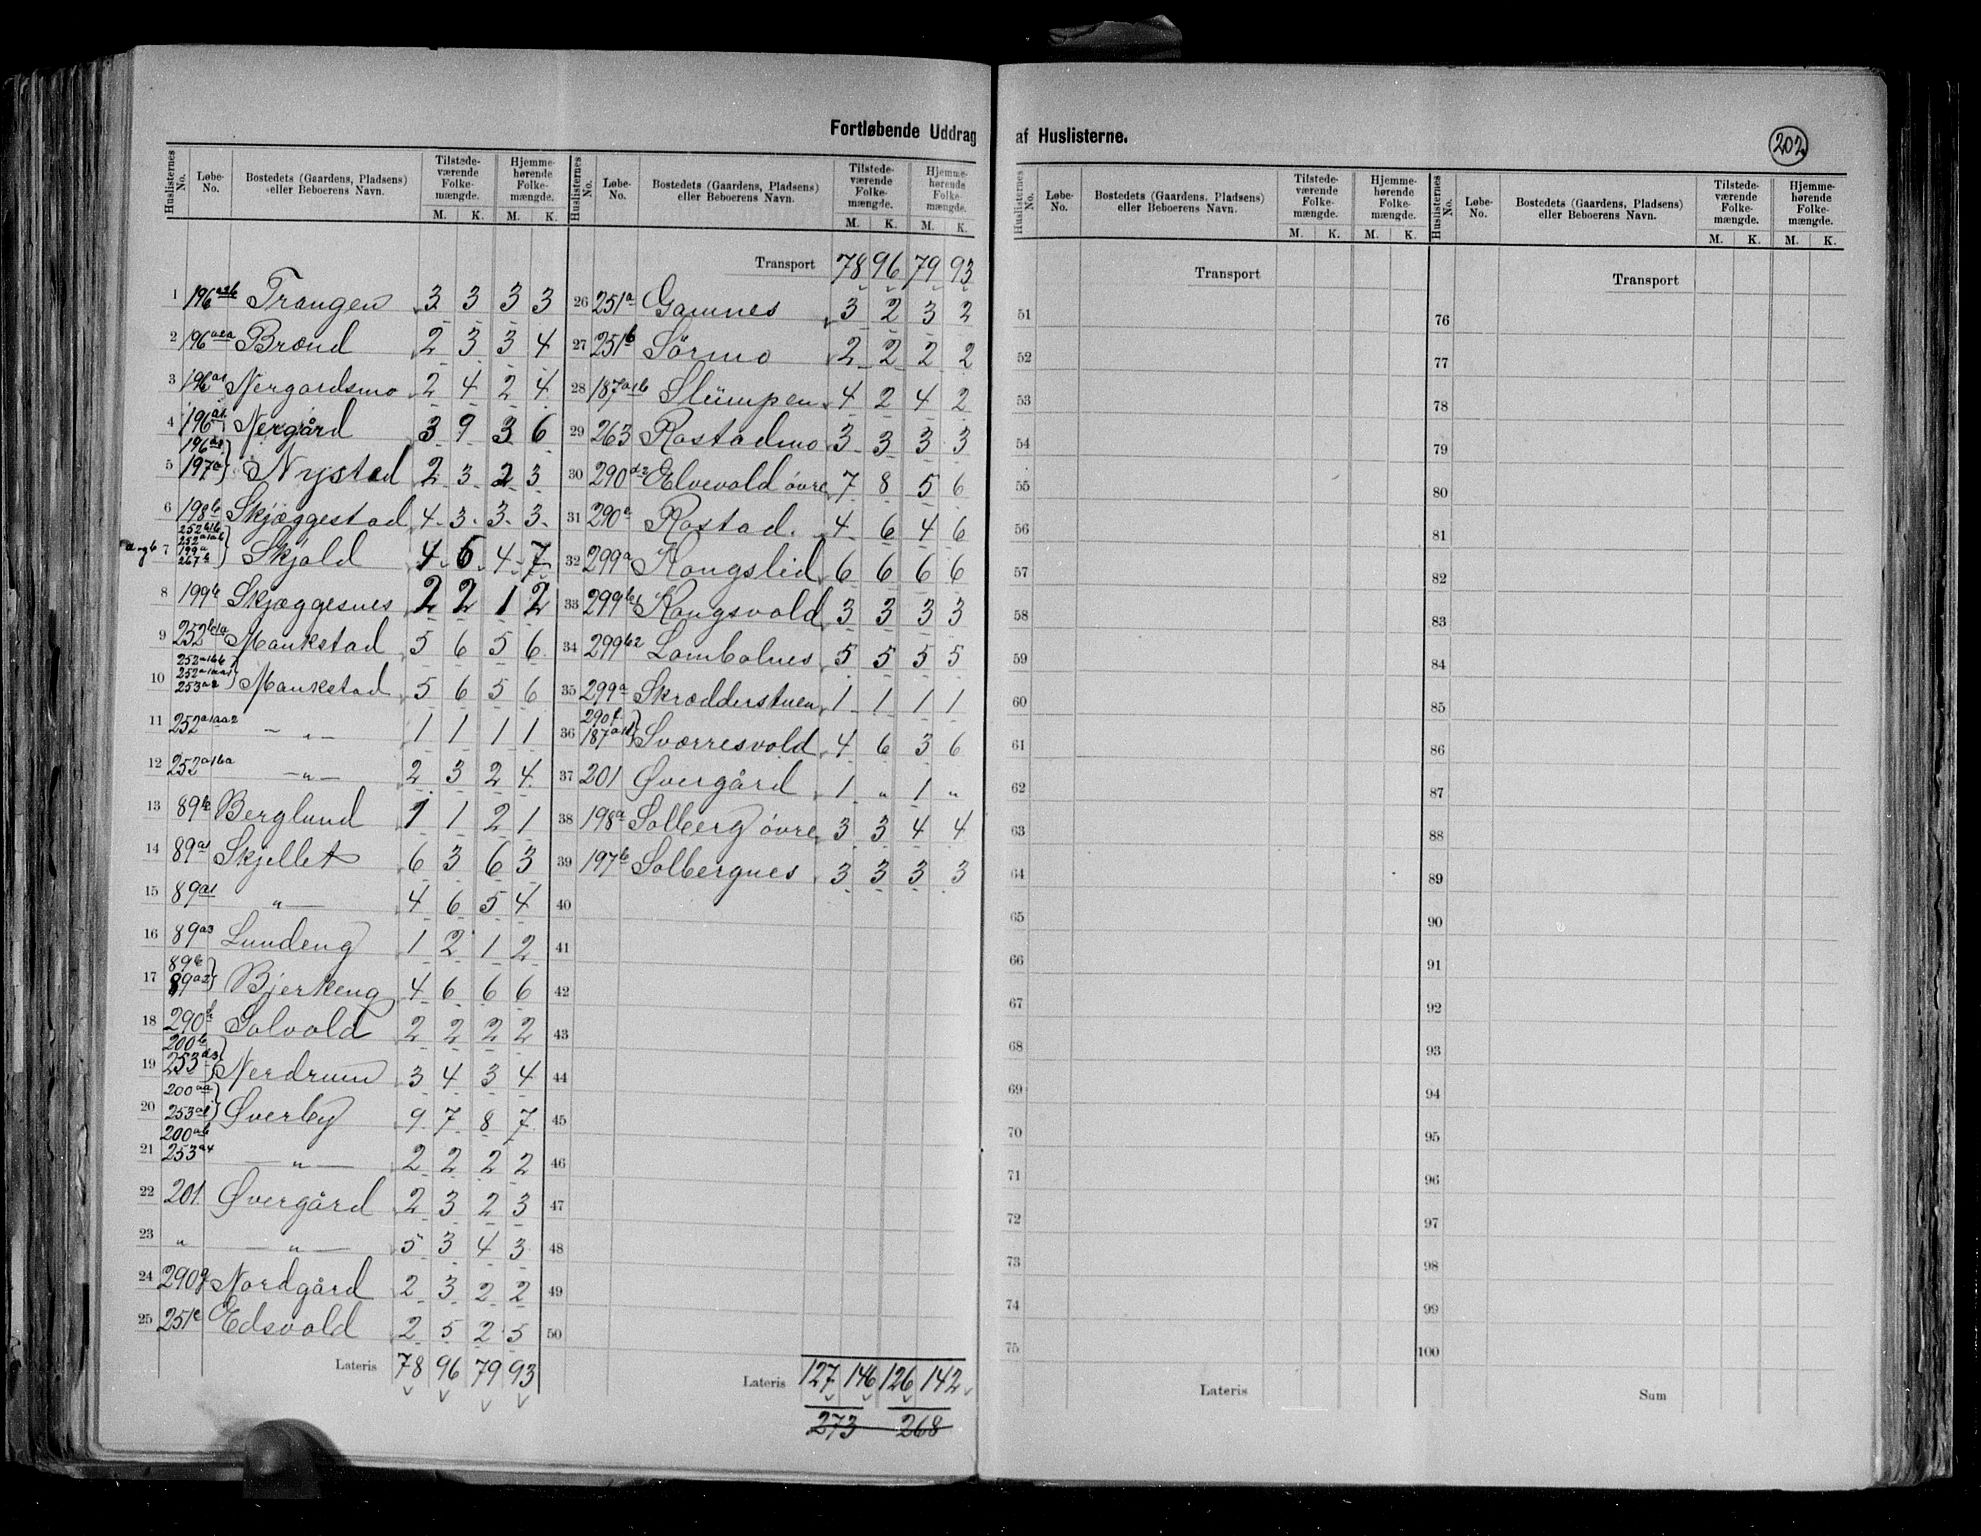 Fortløbende Uddrag af Huslisterne.
202
Huslisternes No. Løbe-No. Bostedets (Gaardens, Pladsens) eller Beboerens Navn. Tilstedeværende Folkemængde. M. K. Hjemmehørende Folkemængde. M. K.
1 196 a2b Trangen 3 3 3 3
2 196 a2a Brænd 2 3 3 4
3 196 a1 Nergardsmo 2 4 2 4
4 196 a1 Nergård 3 9 3 6
5 197a Nystad 2 3 2 3
6 198b Skjæggestad 4 3 3 3
7 199a 267b Skjold 4 6 4 7
8 199b Skjæggesnes 2 2 1 2
9 252 b1a Maukstad 5 6 5 6
10 252 a1bb 252 a1aa1 253 a2 Maukstad 5 6 5 6
11 252 a1aa2 — „ — 1 1 1 1
12 252 a1ba — „ — 2 3 2 4
13 89b Berglund 1 1 2 1
14 89a1 Skjellet 6 3 6 3
15 89a1 „ — 4 6 5 4
16 89a3 Lundeng 1 2 1 2
17 89b 89a2 Bjerkeng 4 6 6 6
18 290 Solvold 2 2 2 2
19 200b 253 a3 Nerdrum 3 4 3 4
20 200aa 253a1 Øverby 9 7 8 7
21 200ab 253a4 — „ — 2 2 2 2
22 201. Øvergård 2 3 2 3
23 „ — „ — 5 3 4 3
24 290g Nordgård 2 3 2 2
25 251c Edsvold 2 5 2 5
Lateris 78 96 79 93
Huslisternes No. Løbe-No. Bostedets (Gaardens, Pladsens) eller Beboerens Navn. Tilstedeværende Folkemængde. M. K. Hjemmehørende Folkemængde. M. K.
Transport 78 96 79 93
26 251a Gamnes 3 2 3 2
27 251b Sørmo 2 2 2 2
28 187a1b Slümpen 4 2 4 2
29 263 Rostadmo 3 3 3 3
30 290d2 Elvevold övre 7 8 5 6
31 290a Rostad. 4 6 4 6
32 299a Kongslid 6 6 6 6
33 299b1 Kongsvold 3 3 3 3
34 299b2 Lombolnes 5 5 5 5
35 299a Skrædderstuen 1 1 1 1
36 290f 187a1d Sværresvold 4 6 3 6
37 201 Øvergård 1 „ 1 „
38 198a Solberg övre 3 3 4 4
39 197b Solbergnes 3 3 3 3
40
41
42
43
44
45
46
47
48
49
50
Lateris 127 146 126 142
273 268
Huslisternes No. Løbe-No. Bostedets (Gaardens, Pladsens) eller Beboerens Navn. Tilstedeværende Folkemængde. M. K. Hjemmehørende Folkemængde. M. K.
Transport
51
52
53
54
55
56
57
58
59
60
61
62
63
64
65
66
67
68
69
70
71
72
73
74
75
Lateris
Huslisternes No. Løbe-No. Bostedets (Gaardens, Pladsens) eller Beboerens Navn. Tilstedeværende Folkemængde. M. K. Hjemmehørende Folkemængde. M. K.
Transport
76
77
78
79
80
81
82
83
84
85
86
87
88
89
90
91
92
93
94
95
96
97
98
99
100
Sum